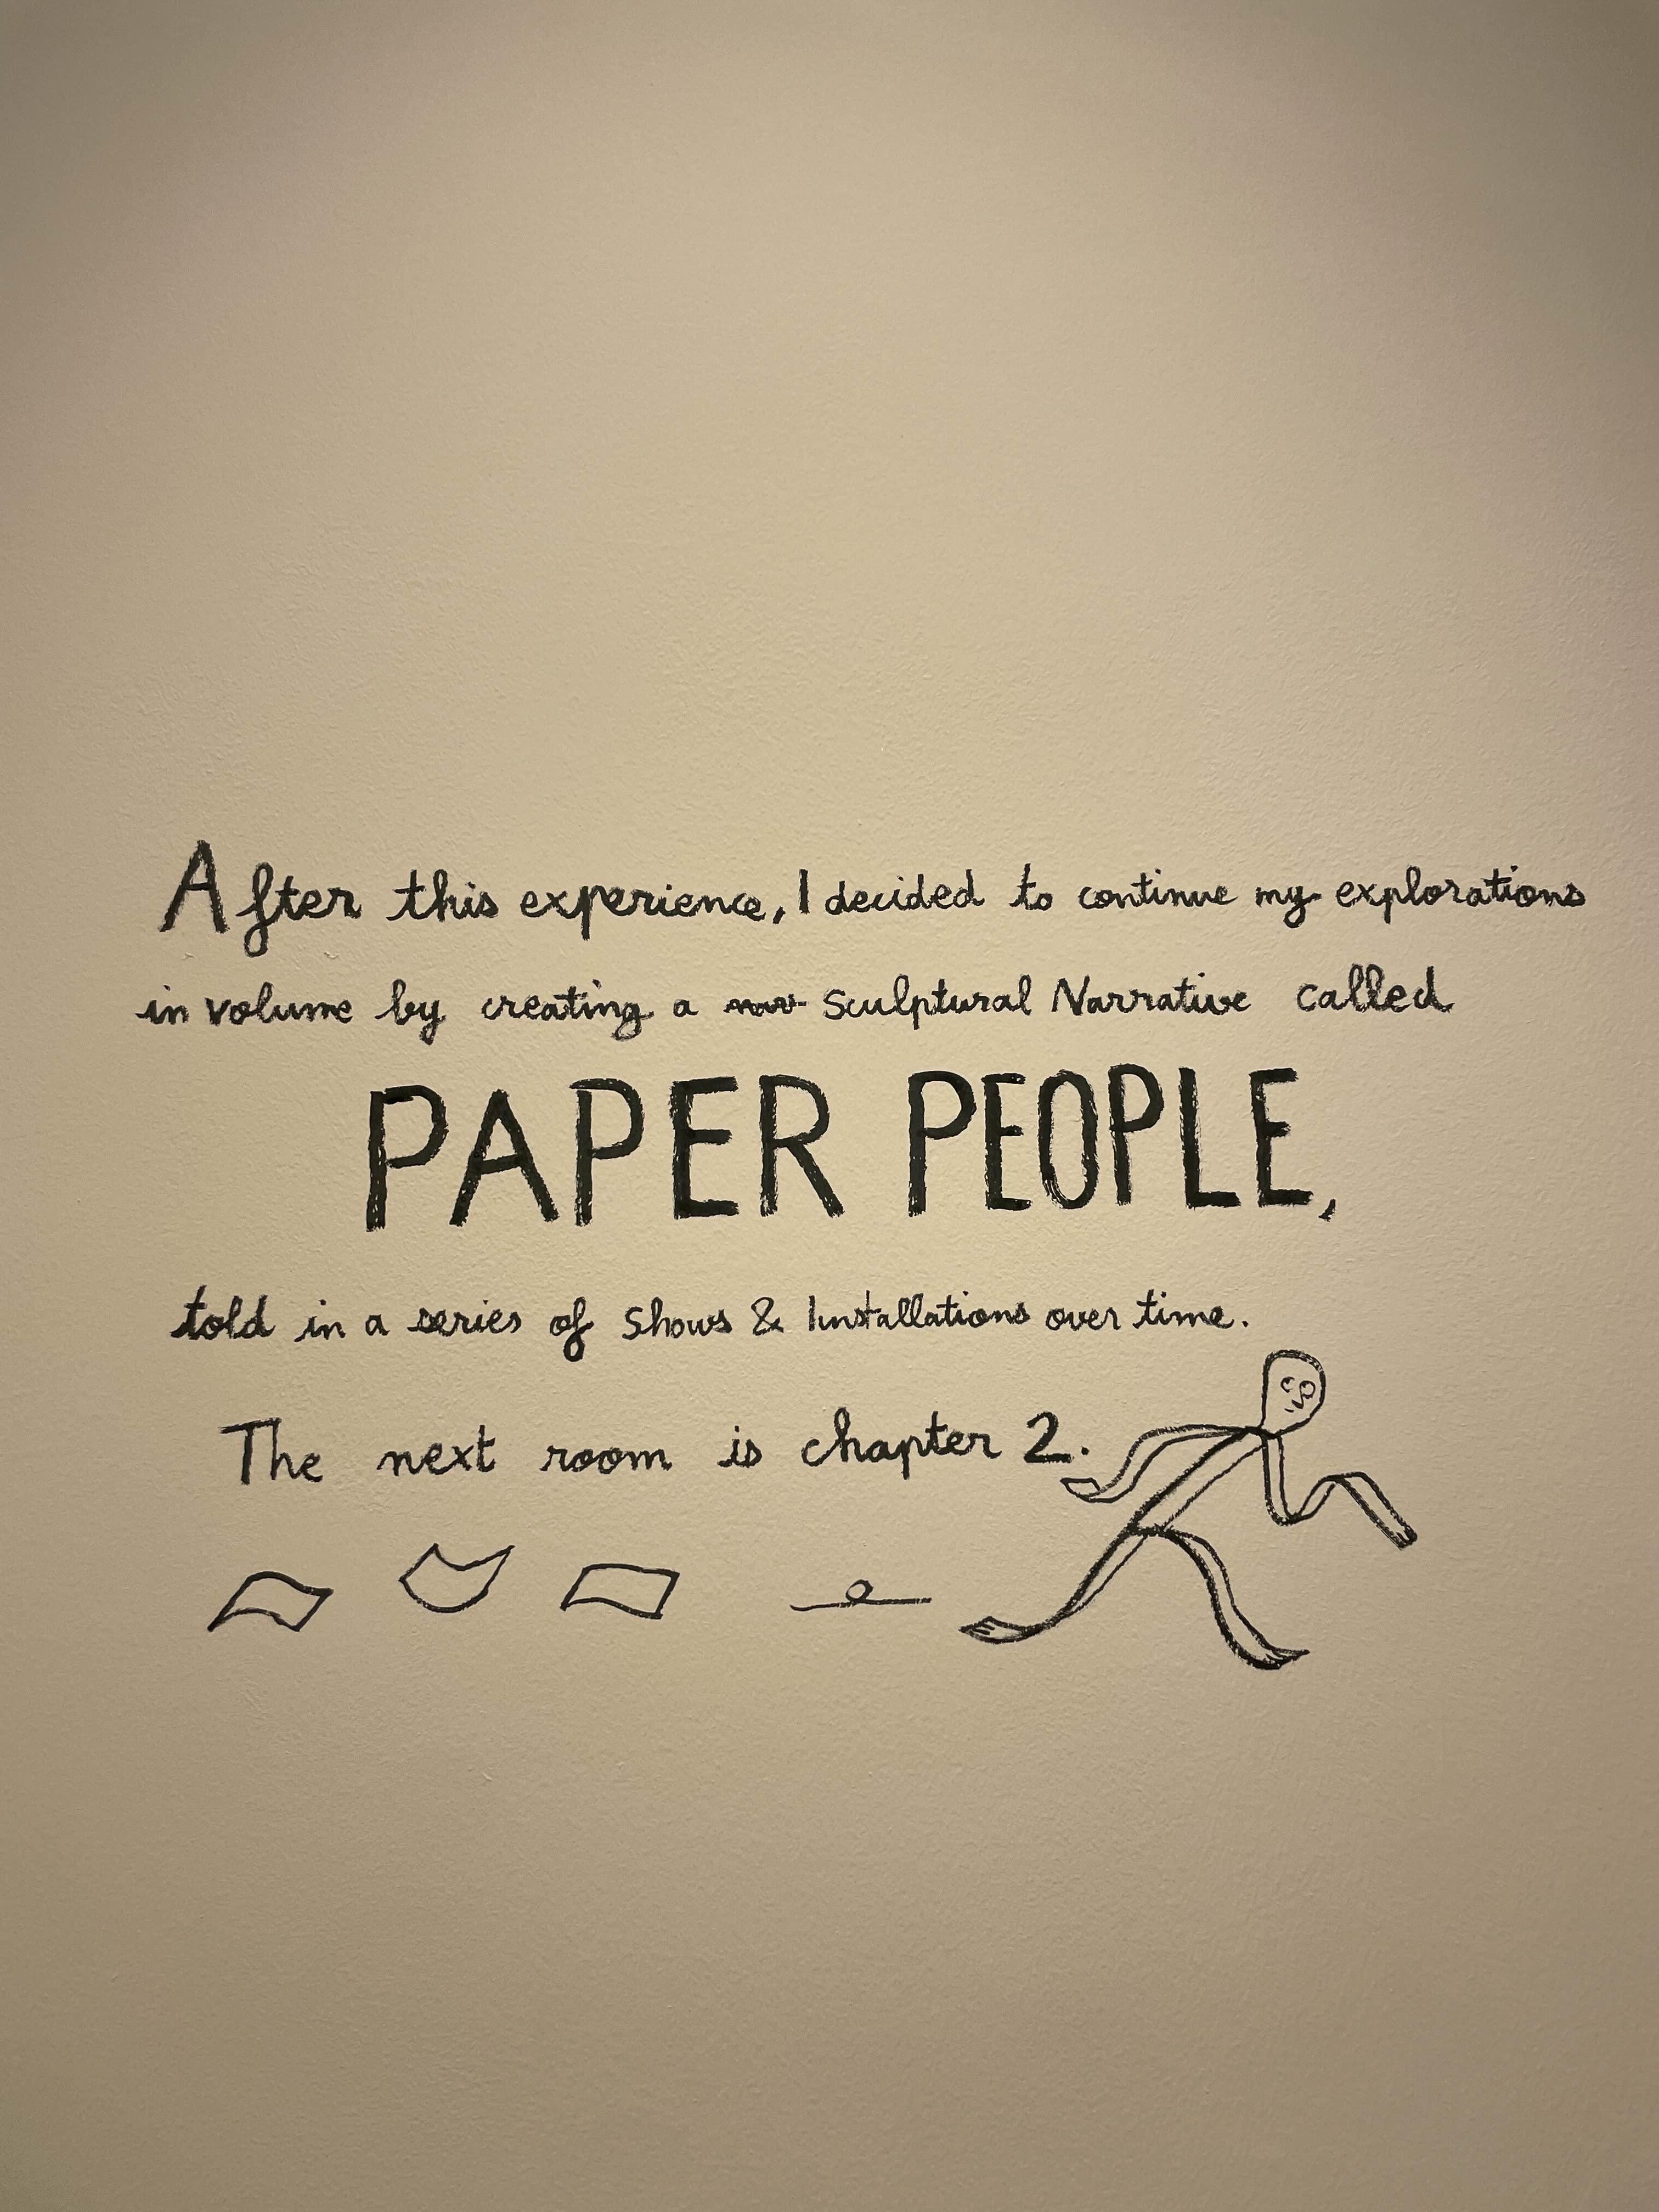 After this experience, I decided to continue my explorations
in volume by creating a nar Sculptural Narrative called
PAPER PEOPLE,
told in a series of Shows & Installations over time.
The next room is chapter 2.